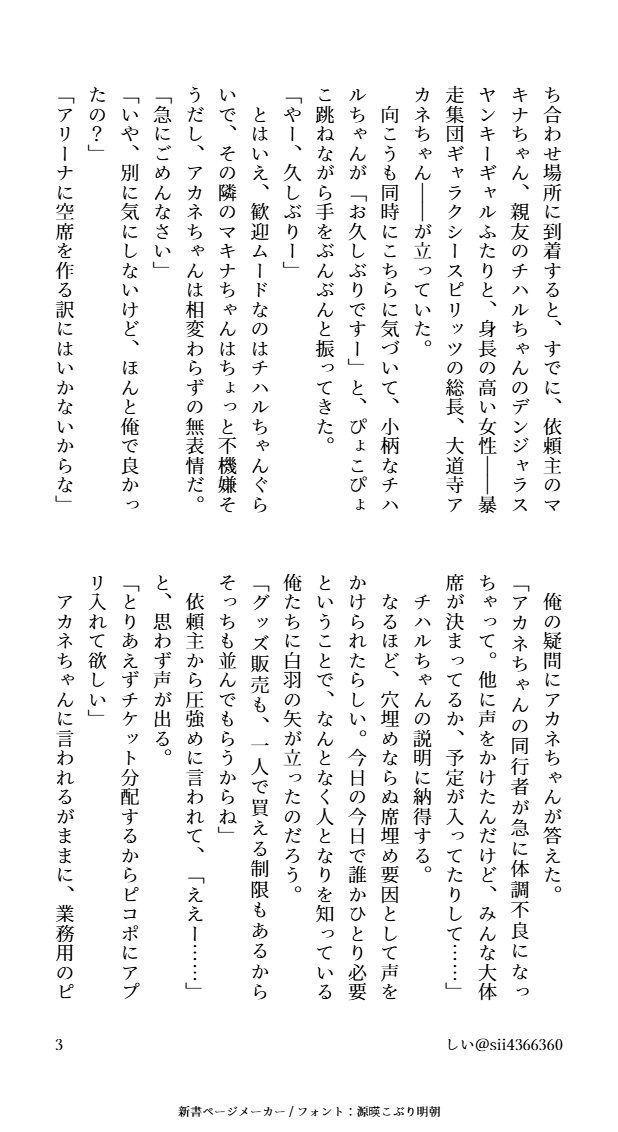 ち合わせ場所に到着すると、すでに、依頼主のマ
キナちゃん、親友のチハルちゃんのデンジャラス
ヤンキーギャルふたりと、身長の高い女性――暴
走集団ギャラクシースピリッツの総長、大道寺ア
カネちゃん――が立っていた。
　向こうも同時にこちらに気づいて、小柄なチハ
ルちゃんが「お久しぶりですー」と、ぴょこぴょ
こ跳ねながら手をぶんぶんと振ってきた。
「やー、久しぶりー」
　とはいえ、歓迎ムードなのはチハルちゃんぐら
いで、その隣のマキナちゃんはちょっと不機嫌そ
うだし、アカネちゃんは相変わらずの無表情だ。
「急にごめんなさい」
「いや、別に気にしないけど、ほんと俺で良かっ
たの？」
「アリーナに空席を作る訳にはいかないからな」
　俺の疑問にアカネちゃんが答えた。
「アカネちゃんの同行者が急に体調不良になっ
ちゃって。他に声をかけたんだけど、みんな大体
席が決まってるか、予定が入ってたりして……」
　チハルちゃんの説明に納得する。
　なるほど、穴埋めならぬ席埋め要因として声を
かけられたらしい。今日の今日で誰かひとり必要
ということで、なんとなく人となりを知っている
俺たちに白羽の矢が立ったのだろう。
「グッズ販売も、一人で買える制限もあるから
そっちも並んでもらうからね」
　依頼主から圧強めに言われて、「ええー……」
と、思わず声が出る。
「とりあえずチケット分配するからピコポにアプ
リ入れて欲しい」
　アカネちゃんに言われるがままに、業務用のピ
3
しい@sii4366360
新書ページメーカー / フォント：源暎こぶり明朝